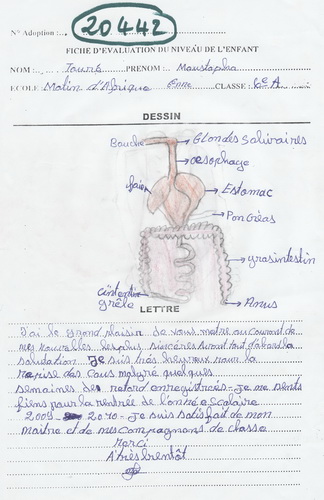 N° Adoption : 20442
FICHE D'EVALUATION DU NIVEAU DE L'ENFANT
NOM : Touré PRENOM : Moustapha
ECOLE Matin d'Afrique CLASSE : 6e A
DESSIN
Bouche Glondes Salivaires
oesophage
foie Estomac
Pancréas
grosintestin
intestin
grêle Anus
LETTRE
J'ai le grand plaisir de vous mettre au courant de
mes nouvelles les plus sincères avant tout d'abord la
salutation. Je suis très heureux pour la
reprise des cours malgré quelques
semaines de retard enregistrées. Je me sents
fiens pour la rentrée de l'année scolaire
2009 2010. Je suis satisfait de mon
maitre et de mes compagnons de classe
Merci
A très bientôt